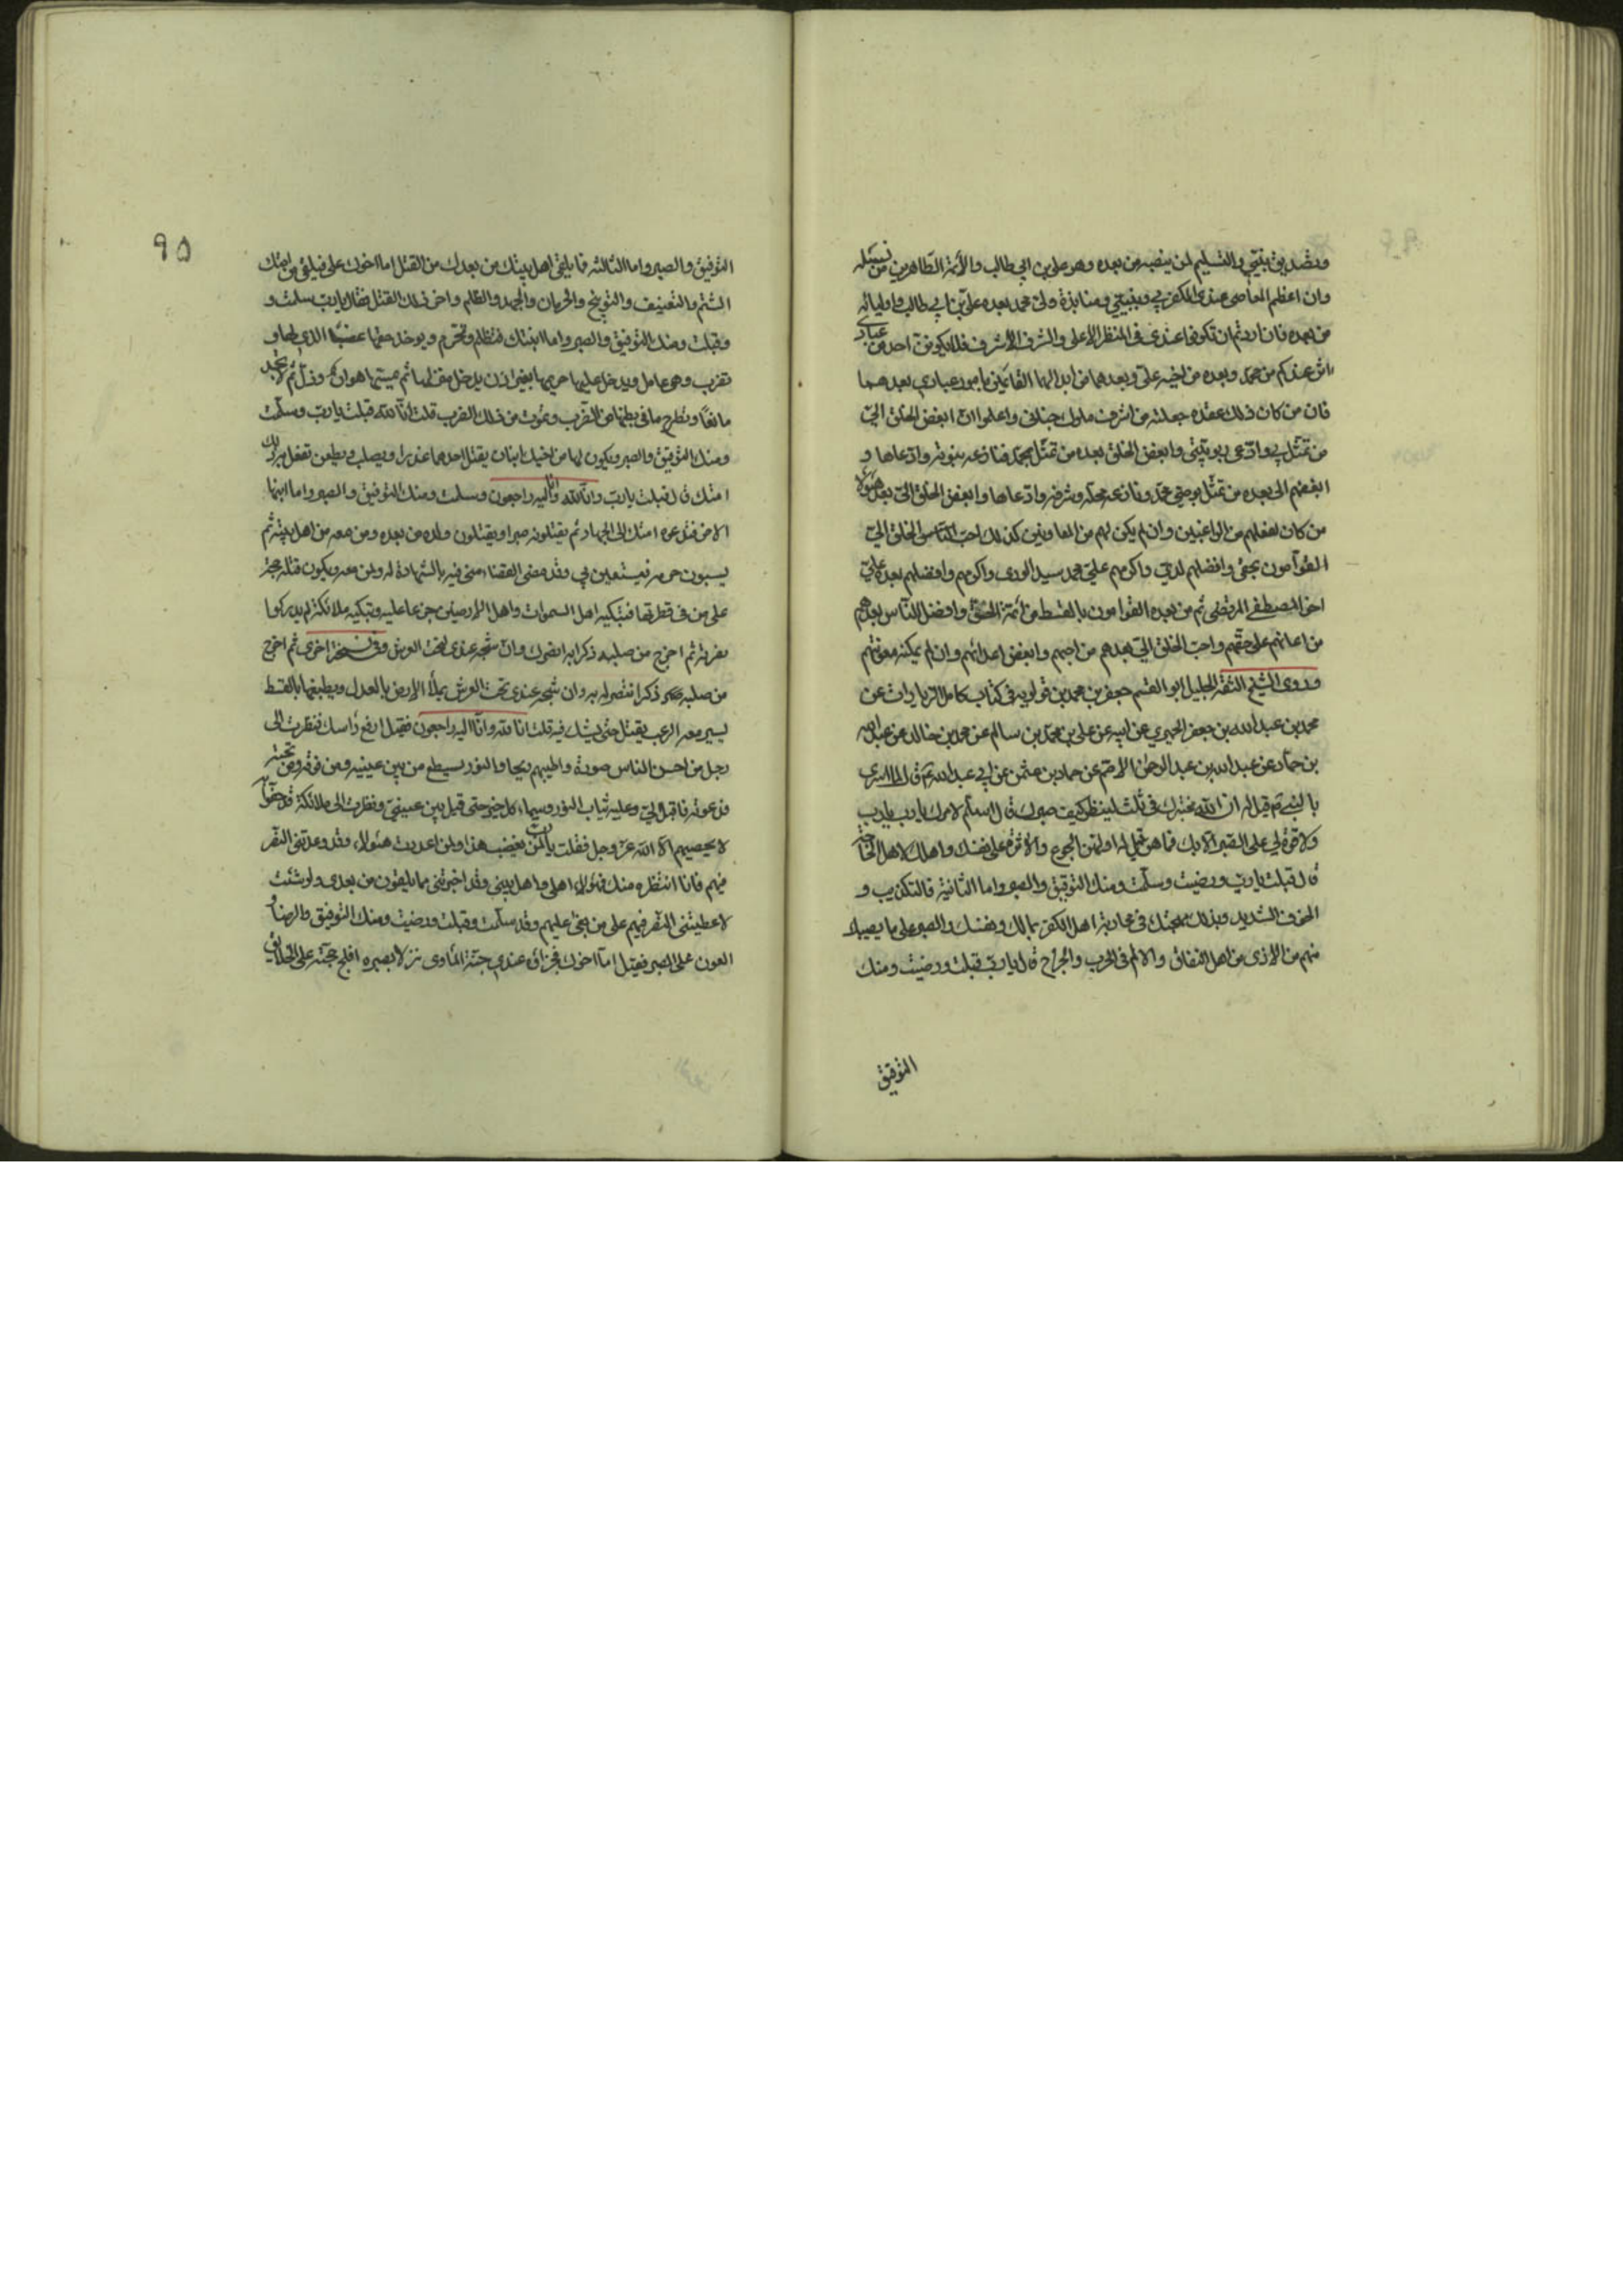 وتصديق بنبيي والتسليم لمن ينصبه من بعده وهو علي بن ابي طالب والأئمة الطاهرين من نسله
وان اعظم المعاصي عندي الكفر بي وبنبيي ومنابذة ولي محمد بعده علي بن ابي طالب واوليائه
من بعده فان اردتم ان تكونوا عندي في المنظر الاعلى والشرف الأشرف فلا يكونن احد من عبادي
اثر عندكم من محمد وبعده من اخيه علي وبعدهما من ابنائهما القائمين بامور عبادي بعدهما
فان من كان ذلك عقده جعلته من اشرف ملوك جناني واعلموا انّ ابغض الخلق اليّ
من تمثّل بي وادّعى ربوبيّتي وابغض الخلق بعده من تمثّل بمحمد فنازعه بنبوته وادّعاها و
ابغضهم الى بعده من تمثّل بوصي محمّد ونازعه محله وشرفه وادّعاها وابغض الخلق اليّ بعد هؤلاء
من كان لفعلهم من الراغبين وان لم يكن لهم من المعاونين كذلك احبّ الناس الخلق اليّ
القوّامون بحقي وافضلهم لديّ واكرمهم عليّ محمد سيد الورى واكرمهم وافضلهم بعده عليّ
اخو المصطفى المرتضى ثم من بعده القوّامون بالقسط من أئمة الحقّ وافضل النّاس بعدهم
من اعانهم على حقّهم واحبّ الخلق اليّ بعدهم من احبهم وابغض اعدائهم وان لم يمكنه معونتهم
وروى الشيخ الثقة الجليل ابو القسم جعفر بن محمد بن قولويه في كتاب كامل الزيارات عن
محمد بن عبد الله بن جعفر الحميري عن ابيه عن علي بن محمد بن سالم عن محمد بن خالد عن عبد الله
بن حمّاد عن عبد الله بن عبد الرحمن الاصم عن حماد بن عثمن عن ابي عبد الله ع قال لما اسري
بالنبي ص قيل له ان الله مختبرك في ثلث لينظر كيف صبرك قال اسلّم لامرك يا رب
ولا قوّة لي على الصبر الّا بك فما هن قيل له اولهن الجوع والأثرة على نفسك واهلك لاهل الحاجة
قال قبلت يا ربّ ورضيت وسلّمت ومنك التوفيق والصبر واما الثانية فالتكذيب و
الخوف الشديد وبذلك مهجتك في محاربة اهل الكفر بمالك ونفسك والصبر على ما يصيبك
منهم من الاذى من اهل النفاق والالم في الحرب والجراح قال يا ربّ قبلت ورضيت ومنك
التوفيق
٩٥
التوفيق والصبر واما الثالثة فما يلقى اهل بيتك من بعدك من القتل اما اخوك علي فيلقى من امتك
الشتم والتعنيف والتوبيخ والحرمان والجهد والظلم واخر ذلك القتل فقال يا ربّ سلمت و
وقبلت ومنك التوفيق والصبر واما ابنتك فتظلم وتحرم ويوخذ حقها غصبًا الذي لها و
تضرب وهي حامل ويدخل عليها حريمها بغير اذن يدخل منزلها ثم يمسّها هوان وذلّ ثم لا تجد
مانعًا وتطرح ما في بطنها من الضرب وتموت من ذلك الضرب قلت انّا لله قبلت يا ربّ وسلّمت
ومنك التوفيق والصبر ويكون لها من اخيك ابنان يقتل احدهما غدرا ويصلب ويطعن تفعل به ذلك
امتك قال قبلت يا ربّ وانّا لله وانّا اليه راجعون وسلمت ومنك التوفيق والصبر واما ابنها
الاخر فتدعوه امتك الى الجهاد ثم يقتلونه صبرا ويقتلون ولده من بعده ومن معه من اهل بيته ثم
يسبون حرمه فيستعين بي وقد مضى القضاء منى فيه بالشهادة له ولمن معه ويكون قتله حجة
على من في قطرتها فتبكيه اهل السموات واهل الارضين جزعا عليه وتبكيه ملائكة لم يدركوا
نصرته ثم اخرج من صلبه ذكرا به انصرك وانّ شبحه عندي تحت العرش وفي نسخة اخرى ثم اخرج
من صلبه ذكرا انتصر له به وان شبحه عندي تحت العرش يملأ الارض بالعدل ويطبقها بالقسط
يسير معه الرعب يقتل حتى يشك فيه قلت انا لله وانّا اليه راجعون فقيل ارفع رأسك فنظرت الى
رجل من احسن الناس صورة واطيبهم ريحا والنور يسطع من بين عينيه ومن فوقه ومن تحته
فدعوته فاقبل اليّ وعليه ثياب النور وسيماء كل خير حتى قبل بين عينيّ ونظرت الى ملائكة قد حفّوا به
لا يحصيهم الّا الله عزّ وجل فقلت يا ربّ لمن يغضب هذا ولمن اعددت هئولاء وقد وعدتني النصر
فيهم فانا انتظره منك فهؤلاء اهلي واهل بيتي وقد اخبرتني ما يلقون من بعدي ولو شئت
لاعطيتني النصر فيهم على من بغى عليهم وقد سلّمت وقبلت ورضيت ومنك التوفيق والرضا و
العون على الصبر فقيل امّا اخوك فجزاؤه عندي جنّة المأوى نزلا بصبره افلج حجته على الخلائق